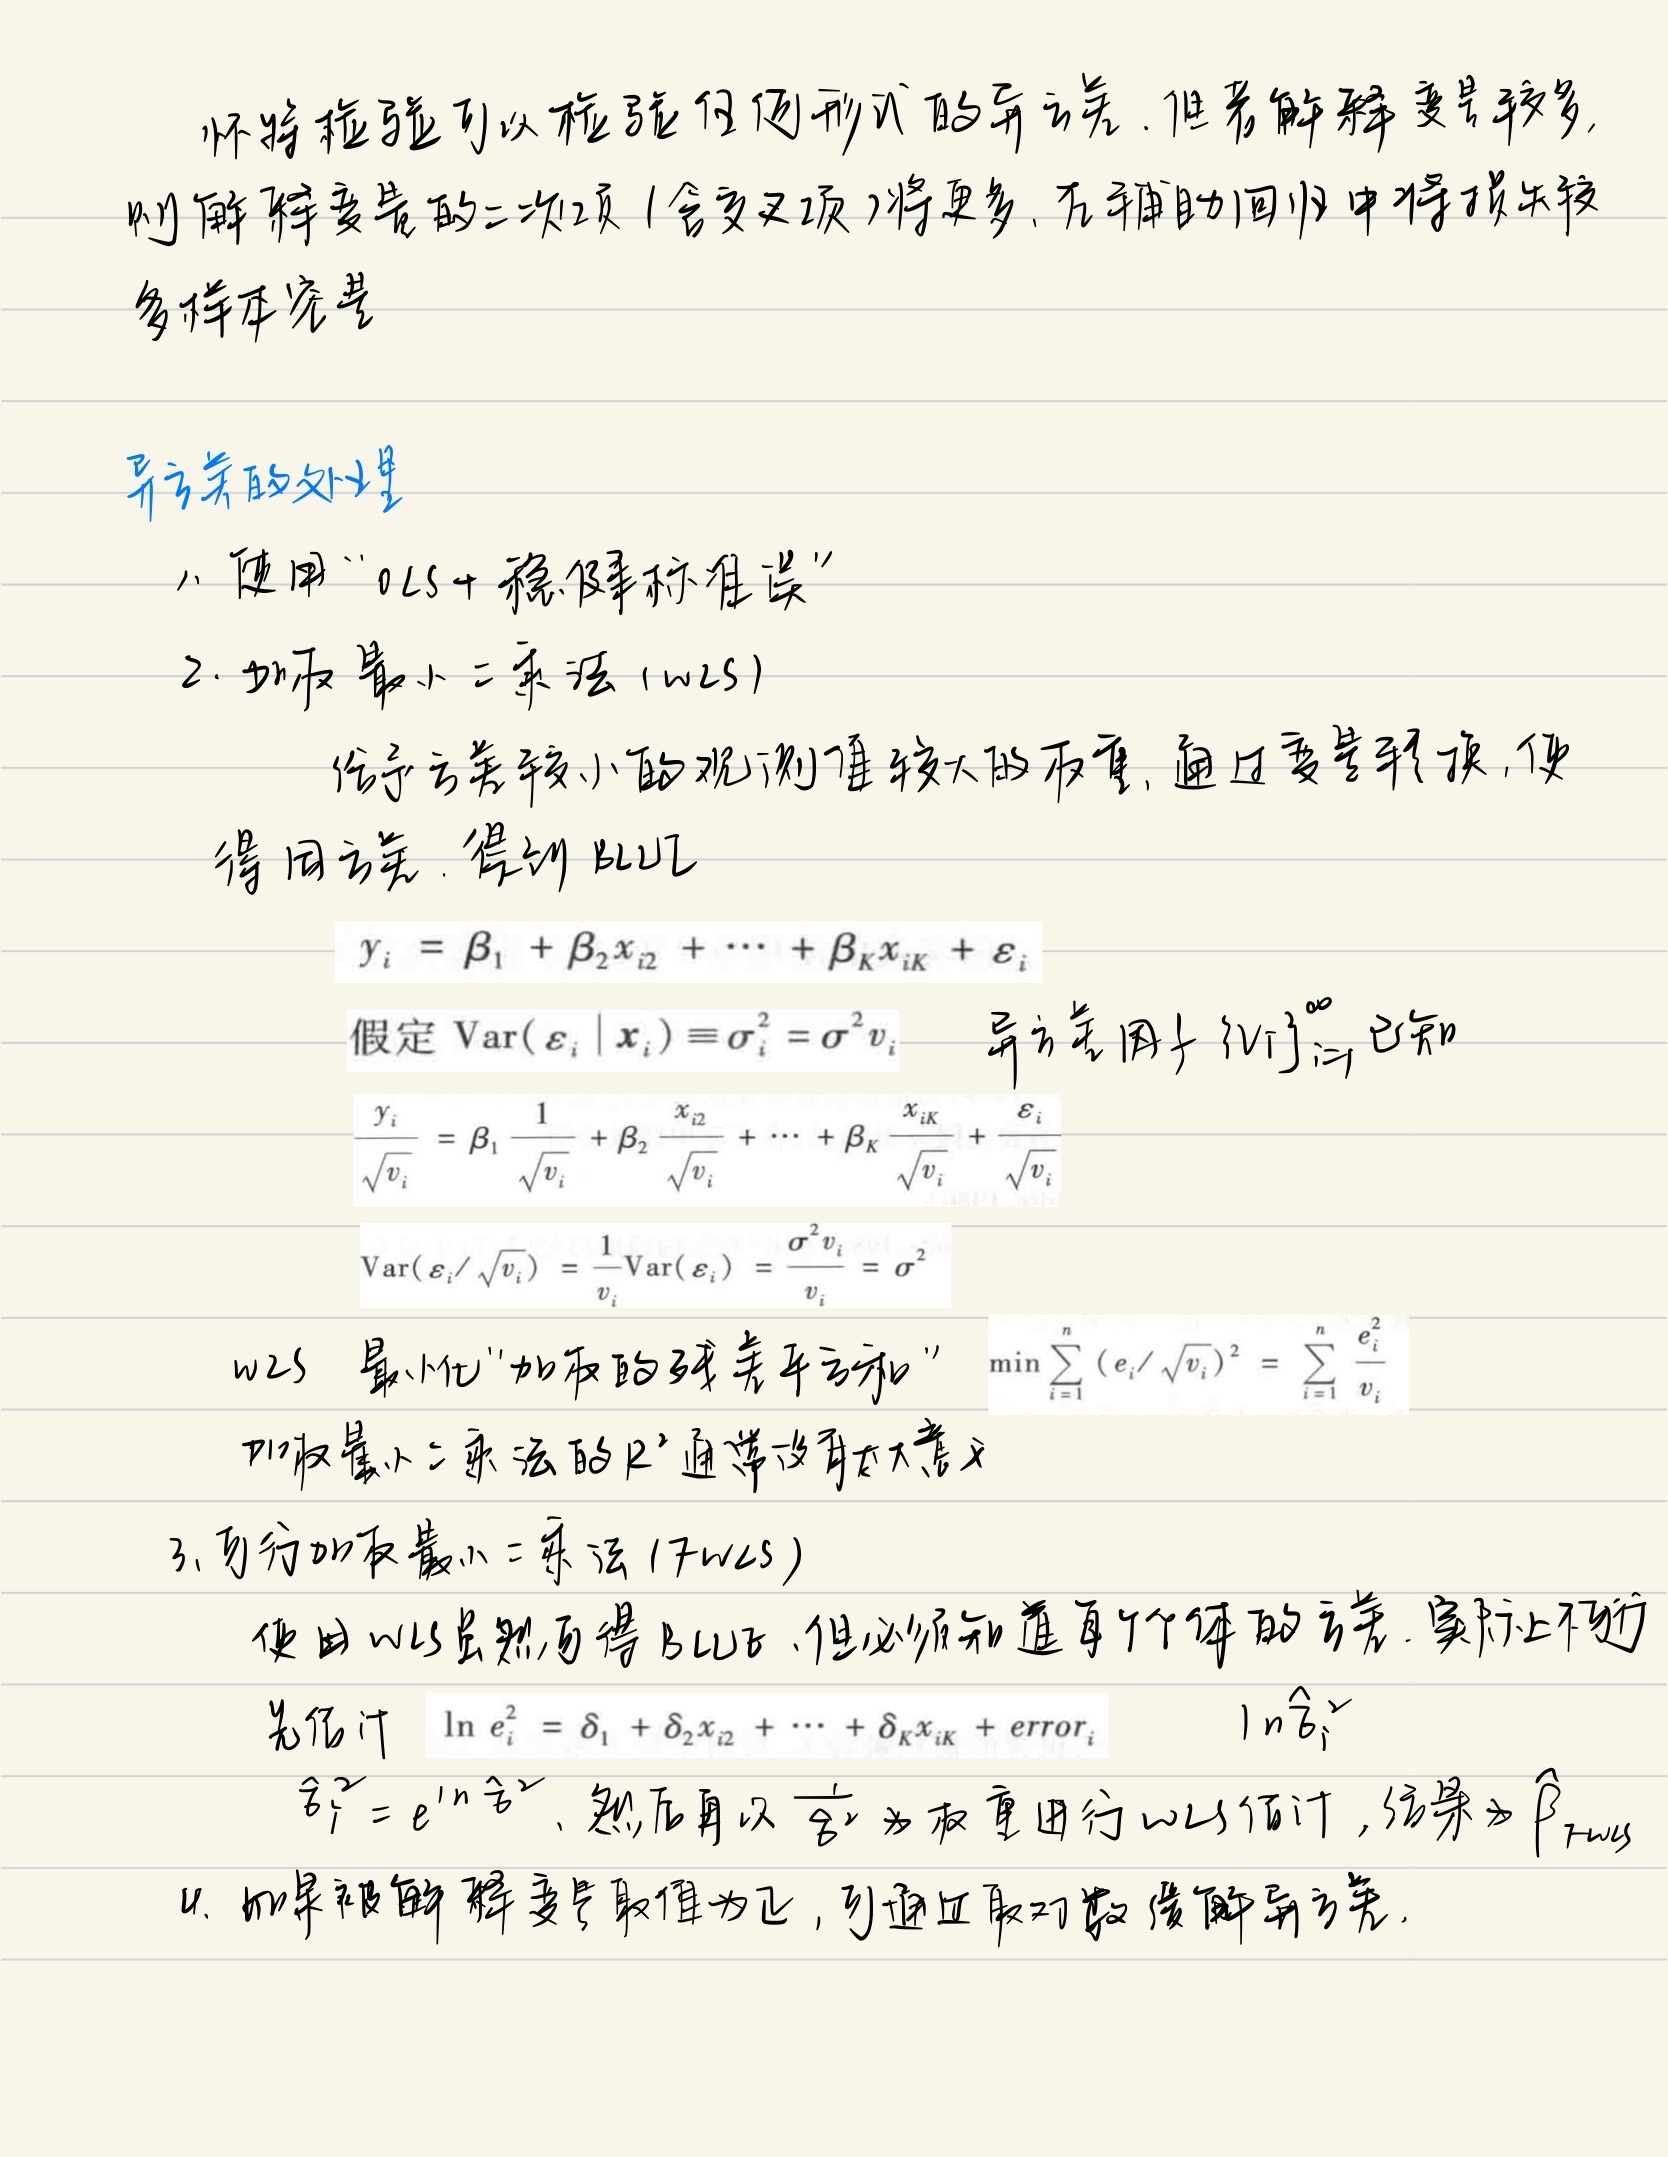 怀特检验可以检验任何形式的异方差.但若解释变量较多,
则解释变量的二次项(含交叉项)将更多、在辅助回归中将损失较
多样本容量
异方差的处理
1、使用“OLS+稳健标准误”
2.加权最小二乘法(WLS)
给予方差较小的观测值较大的权重,通过变量转换,使
得同方差.得到BLUE
y_i = β_1 + β_2x_{i2} + ⋯ + β_Kx_{iK} + ε_i
假定 Var(ε_i | x_i) ≡ σ_i^2 = σ^2v_i 异方差 {v_i}_{i=1}^∞ 已知
y_i/√v_i = β_1 1/√v_i + β_2 x_{i2}/√v_i + ⋯ + β_K x_{iK}/√v_i + ε_i/√v_i
Var(ε_i/√v_i) = 1/v_i Var(ε_i) = σ^2v_i/v_i = σ^2
WLS 最小化“加权的残差平方和” min ∑_{i=1}^n (e_i/√v_i)^2 = ∑_{i=1}^n e_i^2/v_i
加权最小二乘法的R²通常没有太大意义
3、可行加权最小二乘法(FWLS)
使用WLS虽然可得BLUE、但必须知道每个个体的方差.实际上不可行
先估计 ln e_i^2 = δ_1 + δ_2x_{i2} + ⋯ + δ_Kx_{iK} + error_i ln σ̂_i^2
σ̂_i^2 = e^{ln σ̂^2}、然后再以 1/σ̂^2 为权重进行WLS估计,结果为 β̂_{FWLS}
4.如果被解释变量取值为正,可通过取对数缓解异方差.